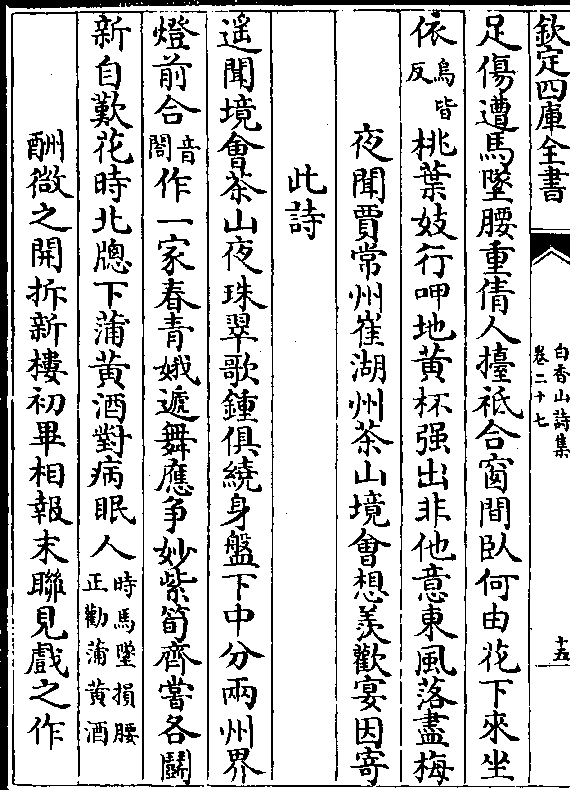 欽定四庫全書
白香山詩集
卷二十七
十五
足傷遭馬墜腰重倩人擡祗合窗間卧何由花下來坐
依烏皆反桃葉妓行呷地黄杯强出非他意東風落盡梅
夜聞賈常州崔湖州茶山境會想羡歡宴因寄
此詩
遥聞境會茶山夜珠翠歌鍾俱繞身盤下中分兩州界
燈前合音閤作一家春青娥遞舞應争妙紫筍齊嘗各鬬
新自歎花時北牕下蒲黄酒對病眠人時馬墜損腰正勸蒲黄酒
酬微之開拆新樓初畢相報末聯見戲之作